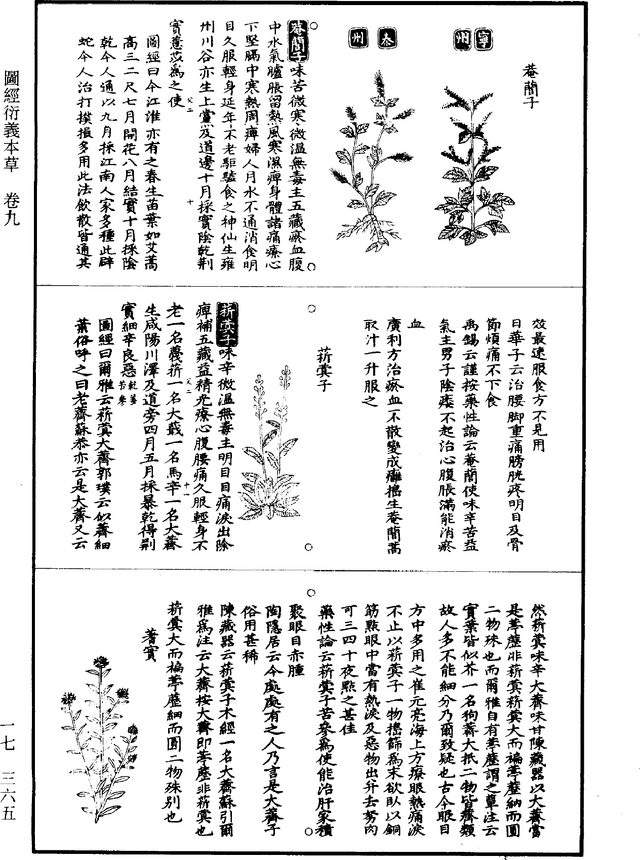 圖經衍義本草　卷九
一七　三六五
菴䕡子
寧州
秦州
菴䕡子味苦微寒微溫無毒主五藏瘀血腹
中水氣臚脹留熱風寒濕痺身體諸痛療心
下堅膈中寒熱周痺婦人月水不通消食明
目久服輕身延年不老駏驉食之神仙生雍
州川谷亦生上黨及道邊十月採實陰乾荆
實薏苡為之使
圖經曰今江淮亦有之春生苗葉如艾蒿
高三二尺七月開花八月結實十月採陰
乾今人通以九月採江南人家多種此辟
蛇今人治打撲損多用此法飲散皆通其
效最速服食方不見用
日華子云治腰脚重痛膀胱疼明目及骨
節煩痛不下食
禹錫云謹按藥性論云菴䕡使味辛苦益
氣主男子陰痿不起治心腹脹滿能消瘀
血
廣利方治瘀血不散變成癰搗生菴䕡蒿
取汁一升服之
菥蓂子
菥蓂子味辛微溫無毒主明目目痛淚出除
痺補五藏益精光療心腹腰痛久服輕身不
老一名蔑菥一名大蕺一名馬辛一名大薺
生咸陽川澤及道旁四月五月採暴乾得荆
實細辛良惡乾薑苦參
圖經曰爾雅云菥蓂大薺郭璞云似薺細
葉俗呼之曰老薺蘇恭亦云是大薺又云
然菥蓂味辛大薺味甘陳藏器以大薺當
是葶藶非菥蓂菥蓂大而褊葶藶細而圓
二物殊也而爾雅自有葶藶謂之蕇注云
實葉皆似芥一名狗薺大抵二物皆薺類
故人多不能細分乃爾致疑也古今眼目
方中多用之崔元亮海上方療眼熱痛淚
不止以菥蓂子一物搗篩為末欲臥以銅
筯點眼中當有熱淚及惡物出并去努肉
可三四十夜點之甚佳
藥性論云菥蓂子苦參為使能治肝家積
聚眼目赤腫
陶隱居云今處處有之人乃言是大薺子
俗用甚稀
陳藏器云菥蓂子本經一名大薺蘇引爾
雅為注云大薺按大薺即葶藶非菥蓂也
菥蓂大而褊葶藶細而圓二物殊別也
蓍實